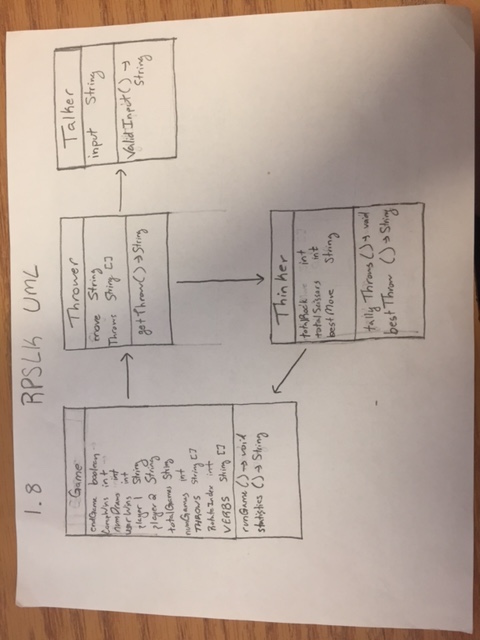 1.8 RPSLK UML
Game
endGame boolean
numDraws int
userWins int
player1 String
player2 String
totalGames String
numGames int
THROWS String []
RobotIndex int
VERBS String []
runGame() → void
statistics() → String
Thrower
move String
Throws String []
getThrow() → String
Talker
input String
ValidInput() →
String
Thinker
totalRock int
totalScissors int
bestMove String
tallyThrows() → void
bestThrow () → String